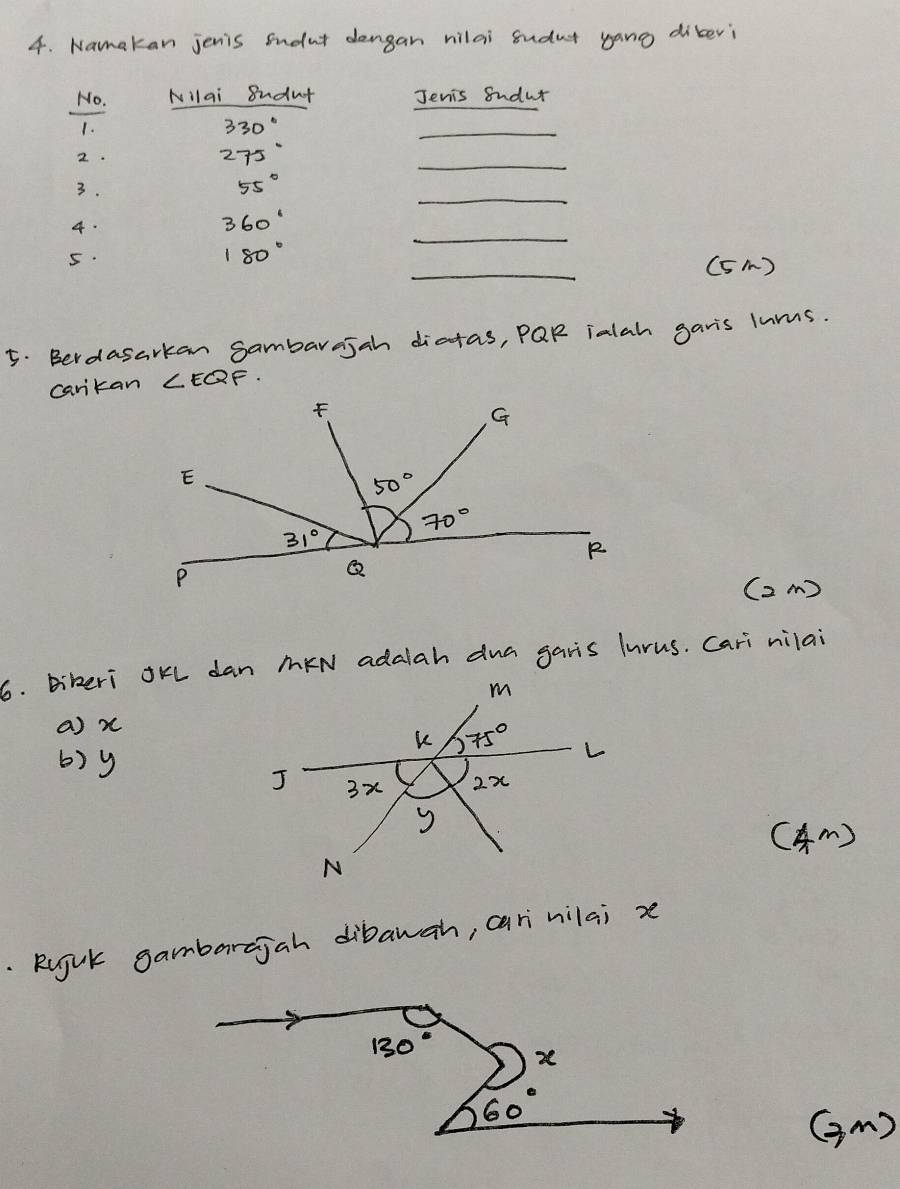 4. Namakan jenis sudut dengan nilai sudut yang diberi
No. Nilai Sudut Jenis Sudut
1. 330°
2. 275°
3. 55°
4. 360°
5. 180°
(5m)
5. Berdasarkan gambarajah diatas, PQR ialah garis lurus.
carikan ∠EQF.
F G
E 50°
31° 70°
P Q R
(2m)
6. Diberi JKL dan MKN adalah dua garis lurus. Cari nilai
a) x
b) y
M
K 75°
J L
3x 2x
y
N
(4m)
. Rujuk gambarajah dibawah, cari nilai x
130°
x
60°